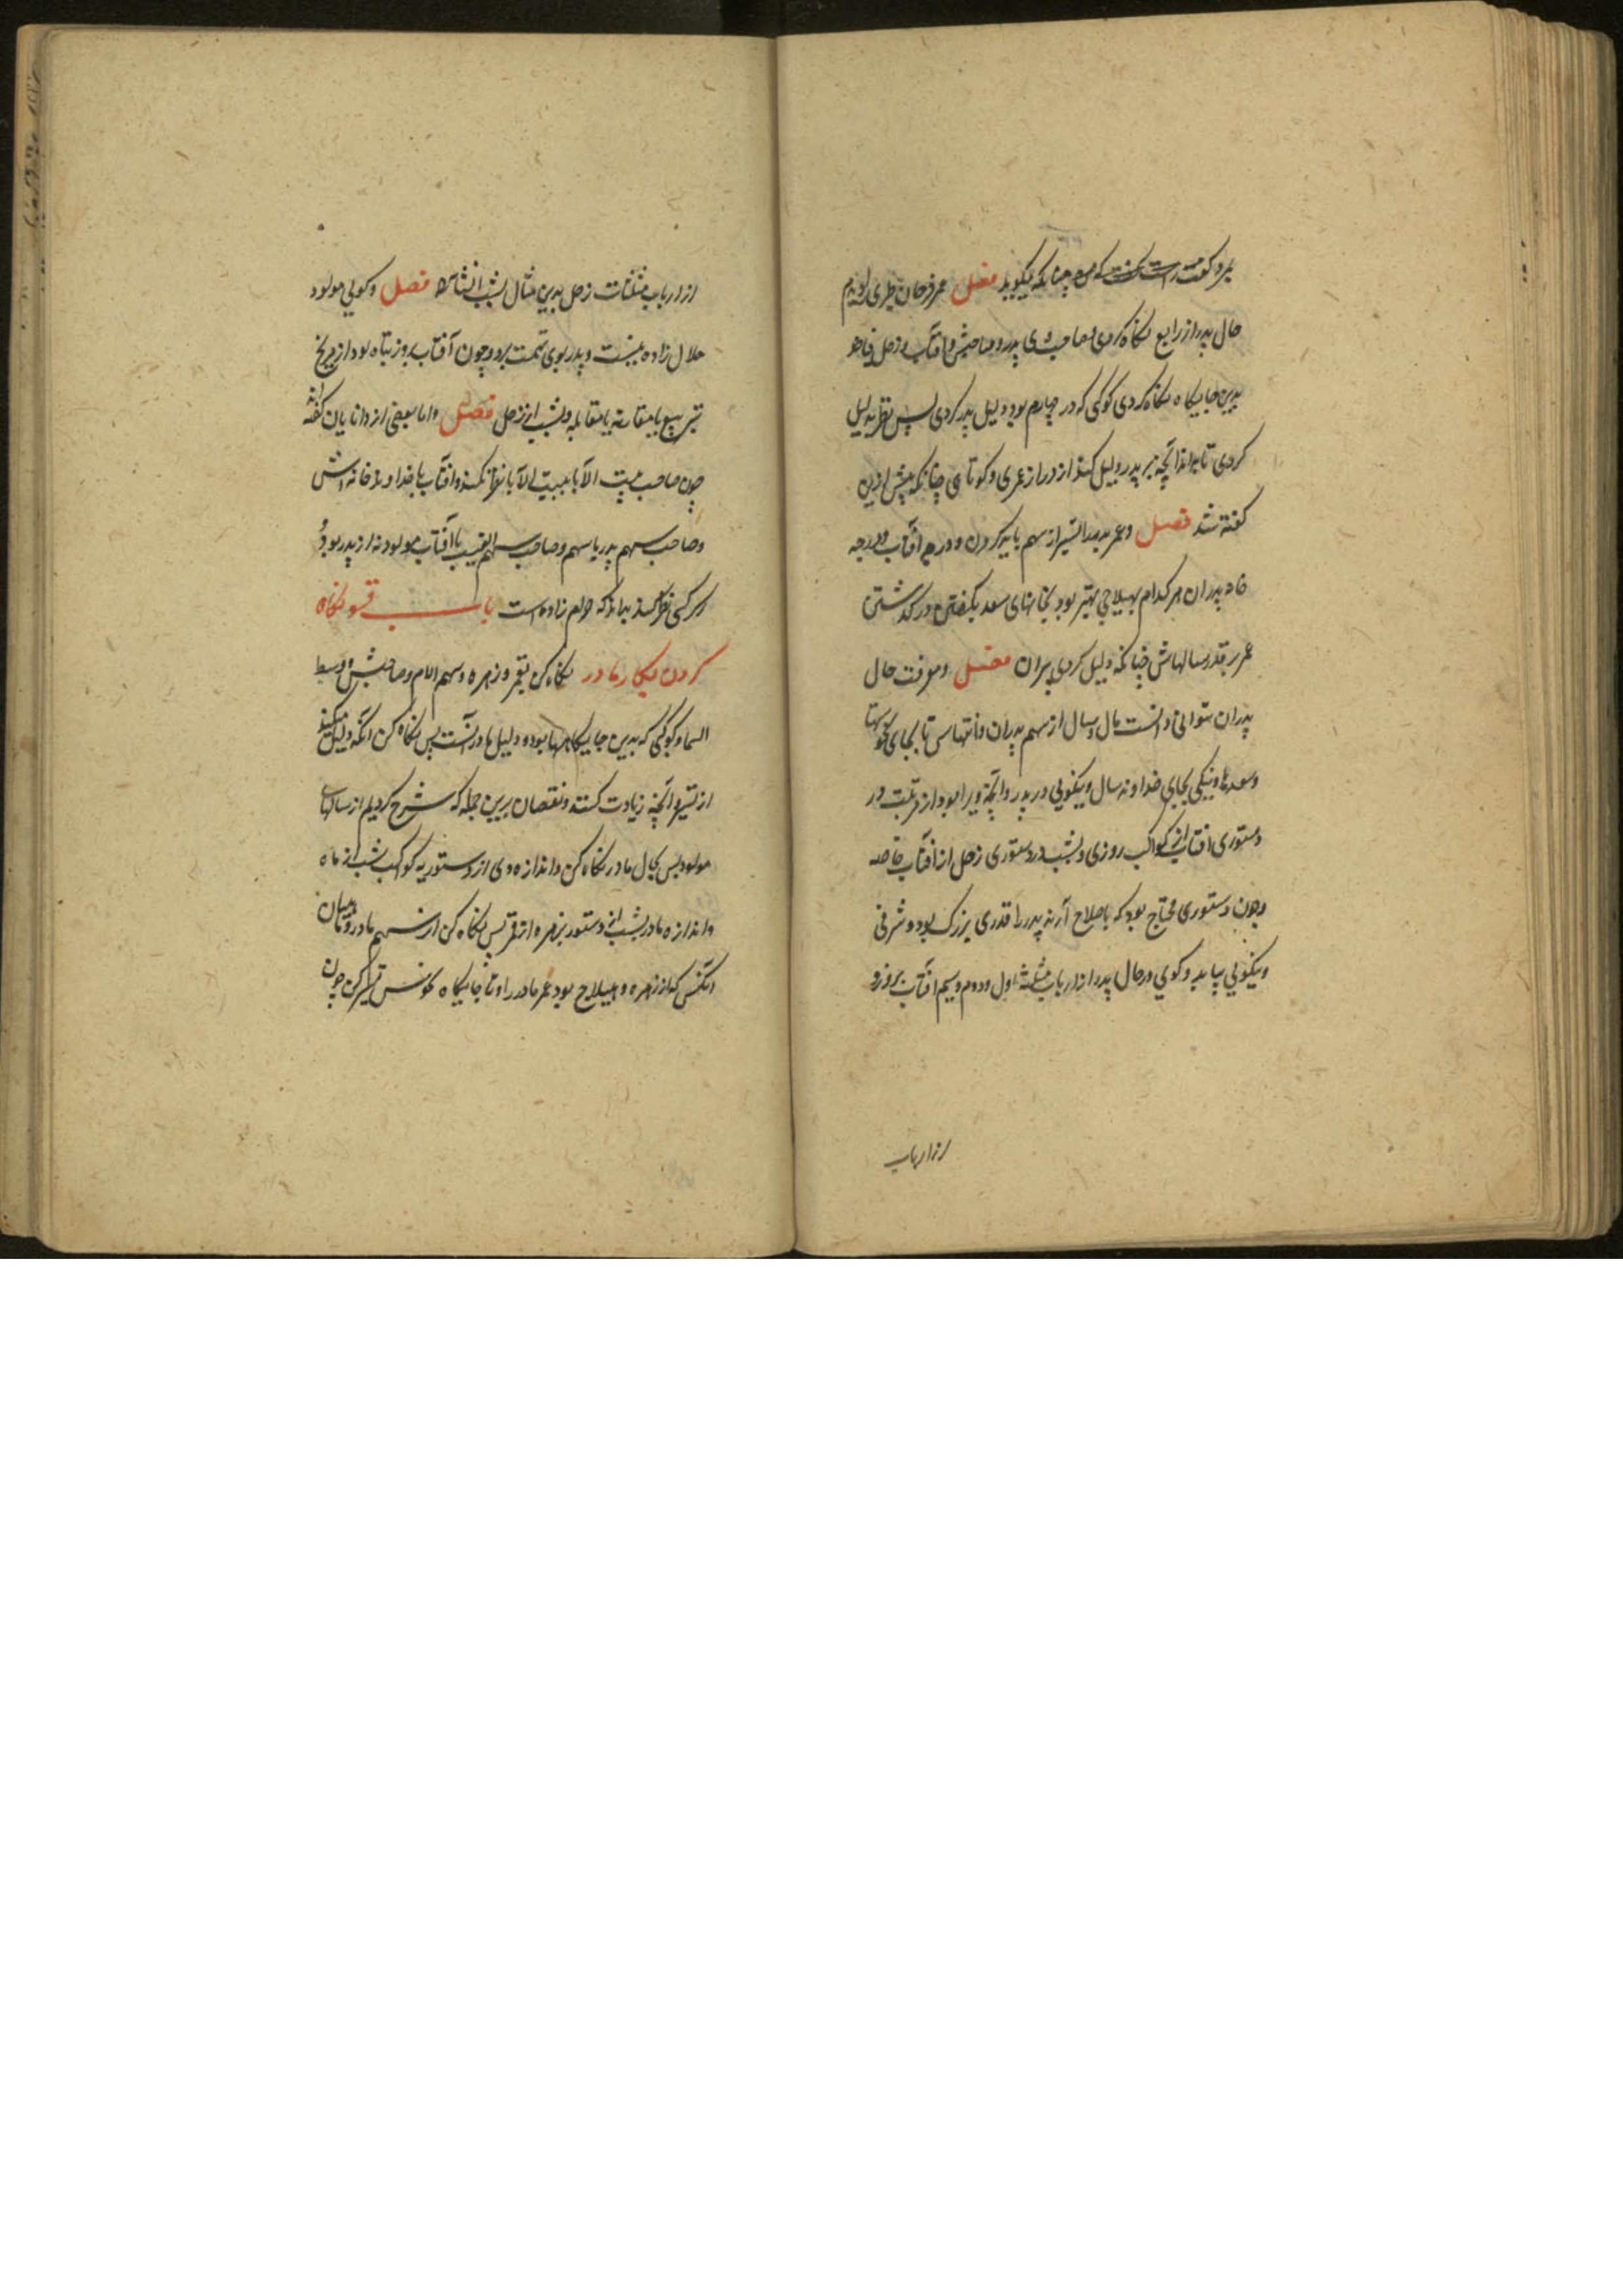 چنانکه میگوید فصل عمر فرخان طبری
حال پدر از رابع نگاه کردی و صاحبش و آفتاب و زحل
بدین جایگاه نگاه کردی کوکبی که در چهارم بود دلیل پدر کردی پس نظر بدلیل
کردی تا بدانجه بر پدر دلیل کند از دراز عمری و کوتاهی چنانکه پیش ازین
گفته شد فصل و عمر پدر از سهم باید کردن و درجه آفتاب و درجه
خانه پدران هر کدام بهیلاجی بهتر بود بجایهای سعد در گذشتن
عمر بر قدر سالهاش چنانکه دلیل کردی بر آن فصل و معرفت حال
پدران توانی دانست سال بسال از سهم پدران و انتهاش تا بجای نحوستها
و سعدها و نیکی بجای خداوند سال و نیکویی در پدر و آنچه ویرا بود از مرتبت در
دستوری آفتاب از کواکب روزی و بشب در دستوری زحل از آفتاب خاصه
و چون دستوری محتاج بود که باصلاح آرند پدر را قدری بزرگ بود و شرفی
و نیکویی بیابد و گویی در حال پدر از ارباب مثلثه اول و دوم و سیم آفتاب بروز و
از ارباب
از ارباب مثلثات زحل بدین مثال بشب انشاالله فصل و گویی مولود
حلال زاده نیست و پدر بوی تهمت برد و چون آفتاب بروز تباه بود از مریخ
بتربیع یا مقارنه یا مقابله و بشب از زحل فصل و اما بعضی از دانایان گفته اند
چون صاحب بیت الآبا ببیت الآبا نظر نکند و آفتاب با خداوند خانه اش
و صاحب سهم پدر با سهم و صاحب سهم الغیب با آفتاب مولود نه از پدر بود
کسی نظر کند بداند که حرام زاده است باب قسو نگاه
کردن بکار مادر نگاه کن بقمر و زهره و سهم الام و صاحبش و وسط
السما و کوکبی که بدین جایگاهها بود و دلیل مادر آنست پس نگاه کن آنکه دلیل میکند
از تسییر و آنچه زیادت کنند و نقصان برین جمله که شرح کردیم از سالهای
مولود پس بحال مادر نگاه کن و اندازه وی از دستوریه کوکب بشب از ماه
و اندازه مادر بشب از دستور زهره از قمر پس نگاه کن از سهم مادر و میان
آنکس که از زهره و هیلاج بود عمر مادر را و تا جایگاه نحوس تسییر کن چون